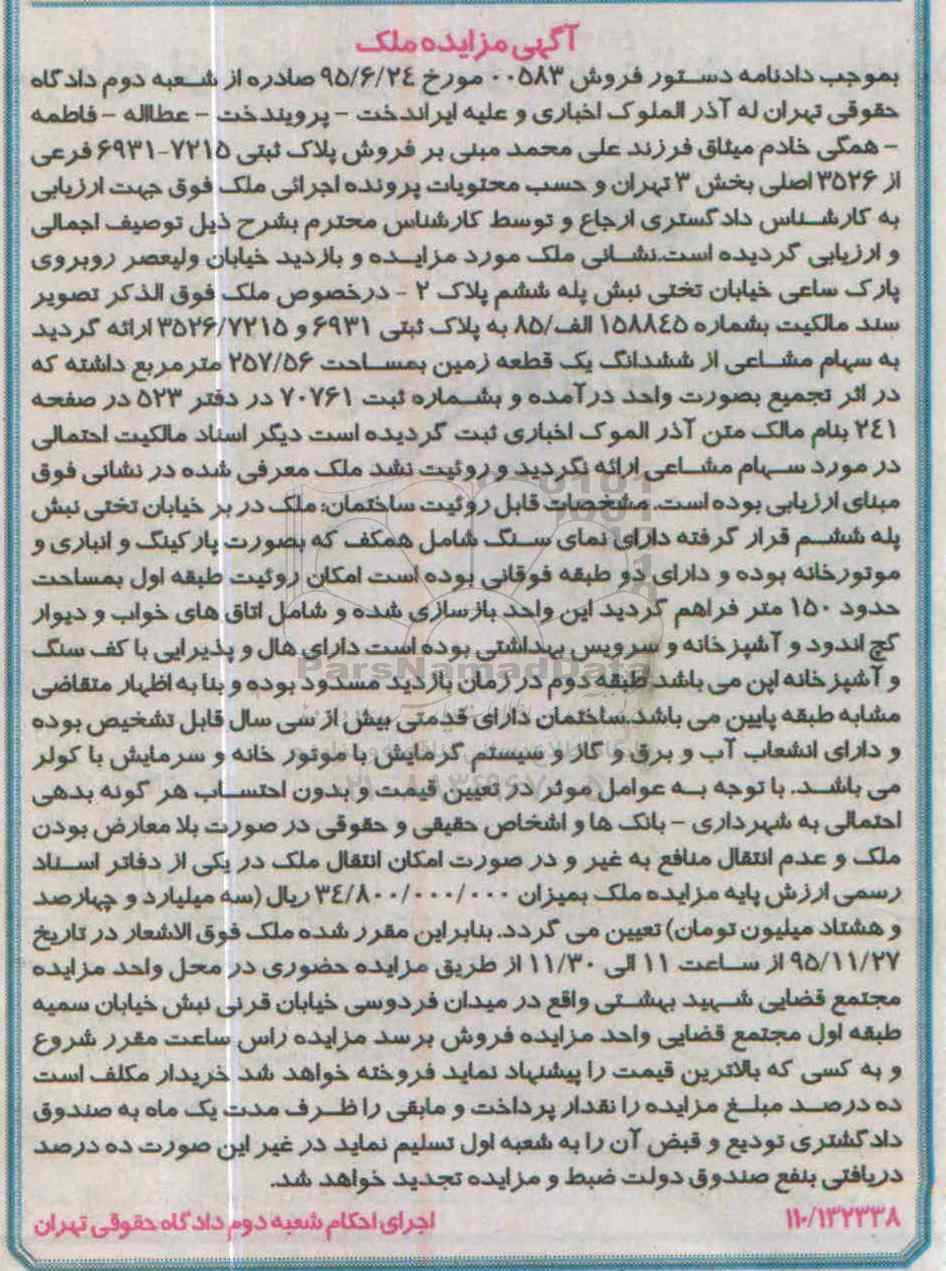 آگهی مزایده ملک
بموجب دادنامه دستور فروش ۰۰۵۸۳ مورخ ۹۵/۶/۲٤ صادره از شعبه دوم دادگاه
حقوقی تهران له آذر الملوک اخباری و علیه ایراندخت - پرویندخت - عطااله - فاطمه
- همگی خادم میثاق فرزند علی محمد مبنی بر فروش پلاک ثبتی ۷۲۱۵-۶۹۳۱ فرعی
از ۳۵۲۶ اصلی بخش ۳ تهران و حسب محتویات پرونده اجرائی ملک فوق جهت ارزیابی
به کارشناس دادگستری ارجاع و توسط کارشناس محترم بشرح ذیل توصیف اجمالی
و ارزیابی گردیده است.نشانی ملک مورد مزایده و بازدید خیابان ولیعصر روبروی
پارک ساعی خیابان تختی نبش پله ششم پلاک ۲ - درخصوص ملک فوق الذکر تصویر
سند مالکیت بشماره ۱۵۸۸٤۵ الف/۸۵ به پلاک ثبتی ۶۹۳۱ و ۳۵۲۶/۷۲۱۵ ارائه گردید
به سهام مشاعی از ششدانگ یک قطعه زمین بمساحت ۲۵۷/۵۶ مترمربع داشته که
در اثر تجمیع بصورت واحد درآمده و بشماره ثبت ۷۰۷۶۱ در دفتر ۵۲۳ در صفحه
۲٤۱ بنام مالک متن آذر الموک اخباری ثبت گردیده است دیگر اسناد مالکیت احتمالی
در مورد سهام مشاعی ارائه نگردید و روئیت نشد ملک معرفی شده در نشانی فوق
مبنای ارزیابی بوده است. مشخصات قابل روئیت ساختمان: ملک در بر خیابان تختی نبش
پله ششم قرار گرفته دارای نمای سنگ شامل همکف که بصورت پارکینگ و انباری و
موتورخانه بوده و دارای دو طبقه فوقانی بوده است امکان روئیت طبقه اول بمساحت
حدود ۱۵۰ متر فراهم گردید این واحد بازسازی شده و شامل اتاق های خواب و دیوار
گچ اندود و آشپزخانه و سرویس بهداشتی بوده است دارای هال و پذیرایی با کف سنگ
و آشپزخانه اپن می باشد طبقه دوم در زمان بازدید مسدود بوده و بنا به اظهار متقاضی
مشابه طبقه پایین می باشد.ساختمان دارای قدمتی بیش از سی سال قابل تشخیص بوده
و دارای انشعاب آب و برق و گاز و سیستم گرمایش با موتور خانه و سرمایش با کولر
می باشد. با توجه به عوامل موثر در تعیین قیمت و بدون احتساب هر گونه بدهی
احتمالی به شهرداری - بانک ها و اشخاص حقیقی و حقوقی در صورت بلا معارض بودن
ملک و عدم انتقال منافع به غیر و در صورت امکان انتقال ملک در یکی از دفاتر اسناد
رسمی ارزش پایه مزایده ملک بمیزان ۳٤/۸۰۰/۰۰۰/۰۰۰ ریال (سه میلیارد و چهارصد
و هشتاد میلیون تومان) تعیین می گردد. بنابراین مقرر شده ملک فوق الاشعار در تاریخ
۹۵/۱۱/۲۷ از ساعت ۱۱ الی ۱۱/۳۰ از طریق مزایده حضوری در محل واحد مزایده
مجتمع قضایی شهید بهشتی واقع در میدان فردوسی خیابان قرنی نبش خیابان سمیه
طبقه اول مجتمع قضایی واحد مزایده فروش برسد مزایده راس ساعت مقرر شروع
و به کسی که بالاترین قیمت را پیشنهاد نماید فروخته خواهد شد خریدار مکلف است
ده درصد مبلغ مزایده را نقدار پرداخت و مابقی را ظرف مدت یک ماه به صندوق
دادگشتری تودیع و قبض آن را به شعبه اول تسلیم نماید در غیر این صورت ده درصد
دریافتی بنفع صندوق دولت ضبط و مزایده تجدید خواهد شد.
۱۱۰/۱۳۲۳۳۸
اجرای احکام شعبه دوم دادگاه حقوقی تهران
ParsNamadData